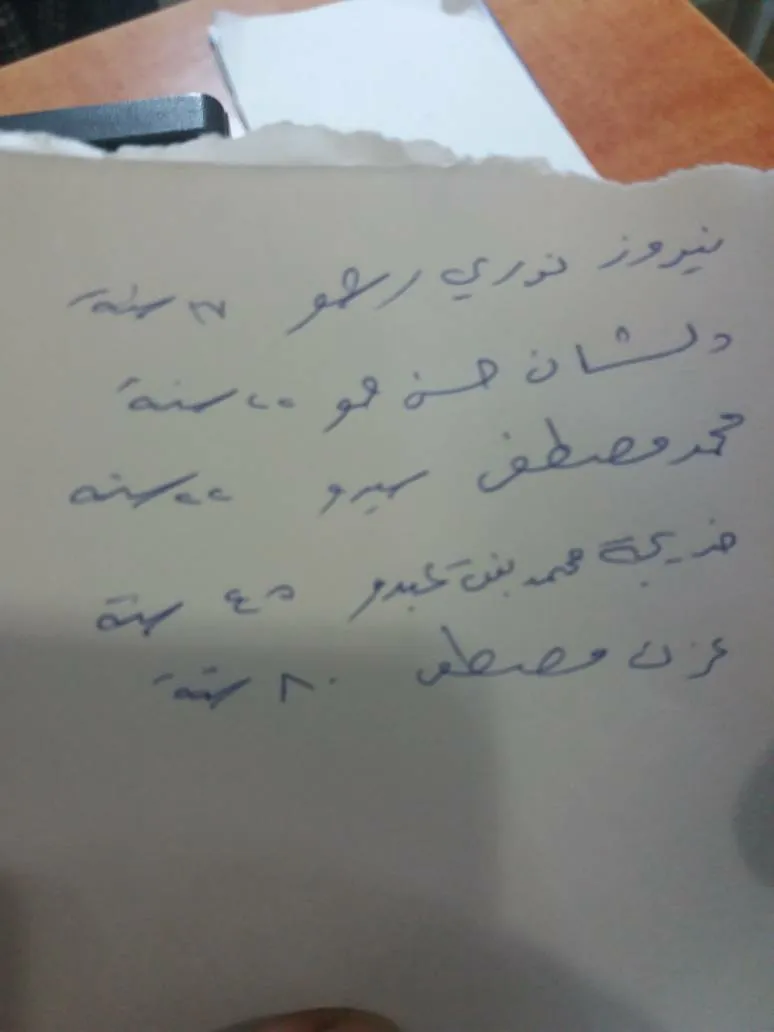 نيروز نوري رشو سنة
دلشان حسن حمو ٢٠ سنة
محمد مصطفى سيدو ٢٢ سنه
خديجة محمد بنت عبدو ٤٥ سنة
عزت مصطفى ٨٠ سنة